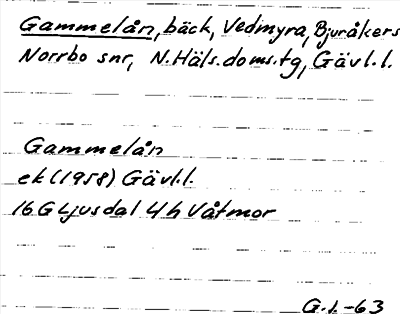 Gammelån, bäck, Vedmyra, Bjuråkers
Norrbo snr, N.Häls.doms.tg, Gävl.l.
Gammelån
ek (1958) Gävl.l.
16G Ljusdal 4h Våtmor
G.L-63